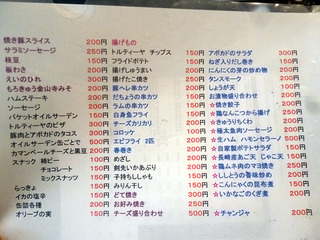 焼き豚スライス 200円
サラミソーセージ 250円
枝豆 200円
板わさ 200円
えいのひれ 200円
もろきゅう金山寺みそ 200円
ハムステーキ 200円
ソーセージ 200円
バケットオイルサーデン
トルティーヤのピザ 300円
豚肉とアボカドのタコス 300円
オイルサーデン缶ごとで 300円
カマンベールチーズと黒豆 200円
スナック 柿ピー 100円
チョコレート 150円
ミックスナッツ 150円
らっきょ 150円
イカの塩辛 150円
缶詰各種 200円
オリーブの実 150円
揚げもの
トルティーヤ チップス 150円
フライドポテト 150円
揚げしゅうまい 200円
揚げたこ焼き 200円
豚ヘレ串カツ 150円
だちょうの串カツ 150円
白身魚フライ 150円
チーズカリカリ 150円
コロッケ 150円
エビフライ 2匹 200円
春巻 200円
めざし 150円
剣先いかあぶり 200円
子持ちししゃも 200円
みりん干し 150円
どて焼き 300円
お好み焼き 250円
チーズ盛り合わせ 500円
アボカドのサラダ 300円
ねぎ入りだし巻き 150円
にんにくの芽の炒め物
タンスモーク
しょうが天
お漬物盛り合わせ
☆焼き餃子
☆鶏なんこつから揚げ
☆きゅうりちくわ
☆極太魚肉ソーセージ 200円
☆生ハム ハモンセラーノ 500円
☆自家製ポテトサラダ 200円
☆長崎産あご天 じゃこ天 150円
☆鶏ムネ肉のマヨ焼き 250円
☆ししとうの香味炒め 200円
☆こんにゃくの昆布煮 150円
☆いかなごのくぎ煮 200円
☆チャンジャ 200円